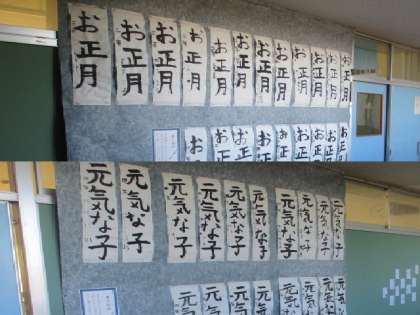 お正月
お正月
お正月
お正月
お正月
お正月
お正月
お正月
お正月
お正月
お正月
お正月
お正
お正
お正
お正
お正
お正
お正
お正
元気な子
元気な子
元気な子
元気な子
元気な子
元気な子
元気な子
元気な子
元気な子
元気な子
元気
元気
元気
元気
元気
元気
元気
元気